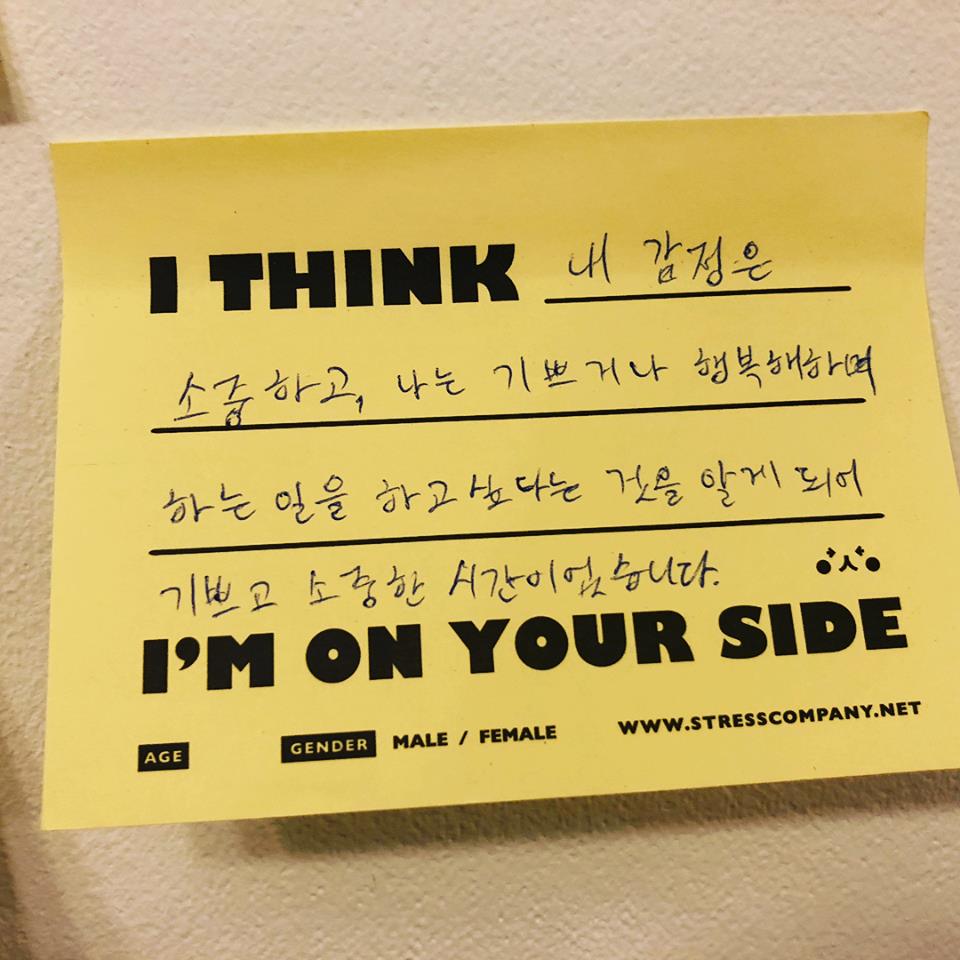 I THINK 내 감정은
소중하고, 나는 기쁘거나 행복해하며
하는 일을 하고싶다는 것을 알게 되어
기쁘고 소중한 시간이었습니다.
I'M ON YOUR SIDE
AGE GENDER MALE / FEMALE WWW.STRESSCOMPANY.NET